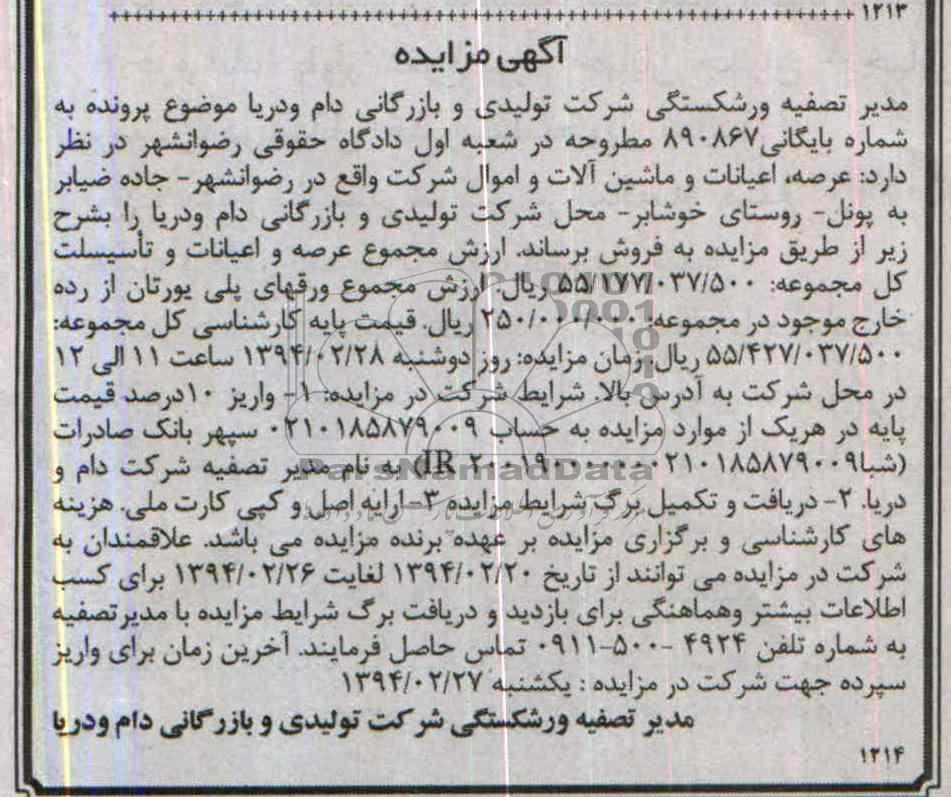 ۱۲۱۳
آگهی مزایده
مدیر تصفیه ورشکستگی شرکت تولیدی و بازرگانی دام ودریا موضوع پرونده به
شماره بایگانی۸۹۰۸۶۷ مطروحه در شعبه اول دادگاه حقوقی رضوانشهر در نظر
دارد: عرصه، اعیانات و ماشین آلات و اموال شرکت واقع در رضوانشهر- جاده ضیابر
به پونل- روستای خوشابر- محل شرکت تولیدی و بازرگانی دام ودریا را بشرح
زیر از طریق مزایده به فروش برساند. ارزش مجموع عرصه و اعیانات و تأسیسلت
کل مجموعه: ۵۵/۱۷۷/۰۳۷/۵۰۰ ریال. ارزش مجموع ورقهای پلی یورتان از رده
خارج موجود در مجموعه: ۲۵۰/۰۰۰/۰۰۰ ریال. قیمت پایه کارشناسی کل مجموعه:
۵۵/۴۲۷/۰۳۷/۵۰۰ ریال. زمان مزایده: روز دوشنبه ۱۳۹۴/۰۲/۲۸ ساعت ۱۱ الی ۱۲
در محل شرکت به آدرس بالا. شرایط شرکت در مزایده: ۱- واریز ۱۰درصد قیمت
پایه در هریک از موارد مزایده به حساب ۰۲۱۰۱۸۵۸۷۹۰۰۹ سپهر بانک صادرات
(شبا IR) به نام مدیر تصفیه شرکت دام و
دریا. ۲- دریافت و تکمیل برگ شرایط مزایده ۳-ارایه اصل و کپی کارت ملی. هزینه
های کارشناسی و برگزاری مزایده بر عهده برنده مزایده می باشد. علاقمندان به
شرکت در مزایده می توانند از تاریخ ۱۳۹۴/۰۲/۲۰ لغایت ۱۳۹۴/۰۲/۲۶ برای کسب
اطلاعات بیشتر وهماهنگی برای بازدید و دریافت برگ شرایط مزایده با مدیرتصفیه
به شماره تلفن ۴۹۲۴ -۵۰۰-۰۹۱۱ تماس حاصل فرمایند. آخرین زمان برای واریز
سپرده جهت شرکت در مزایده : یکشنبه ۱۳۹۴/۰۲/۲۷
مدیر تصفیه ورشکستگی شرکت تولیدی و بازرگانی دام ودریا
۱۲۱۴
ParsNamadData